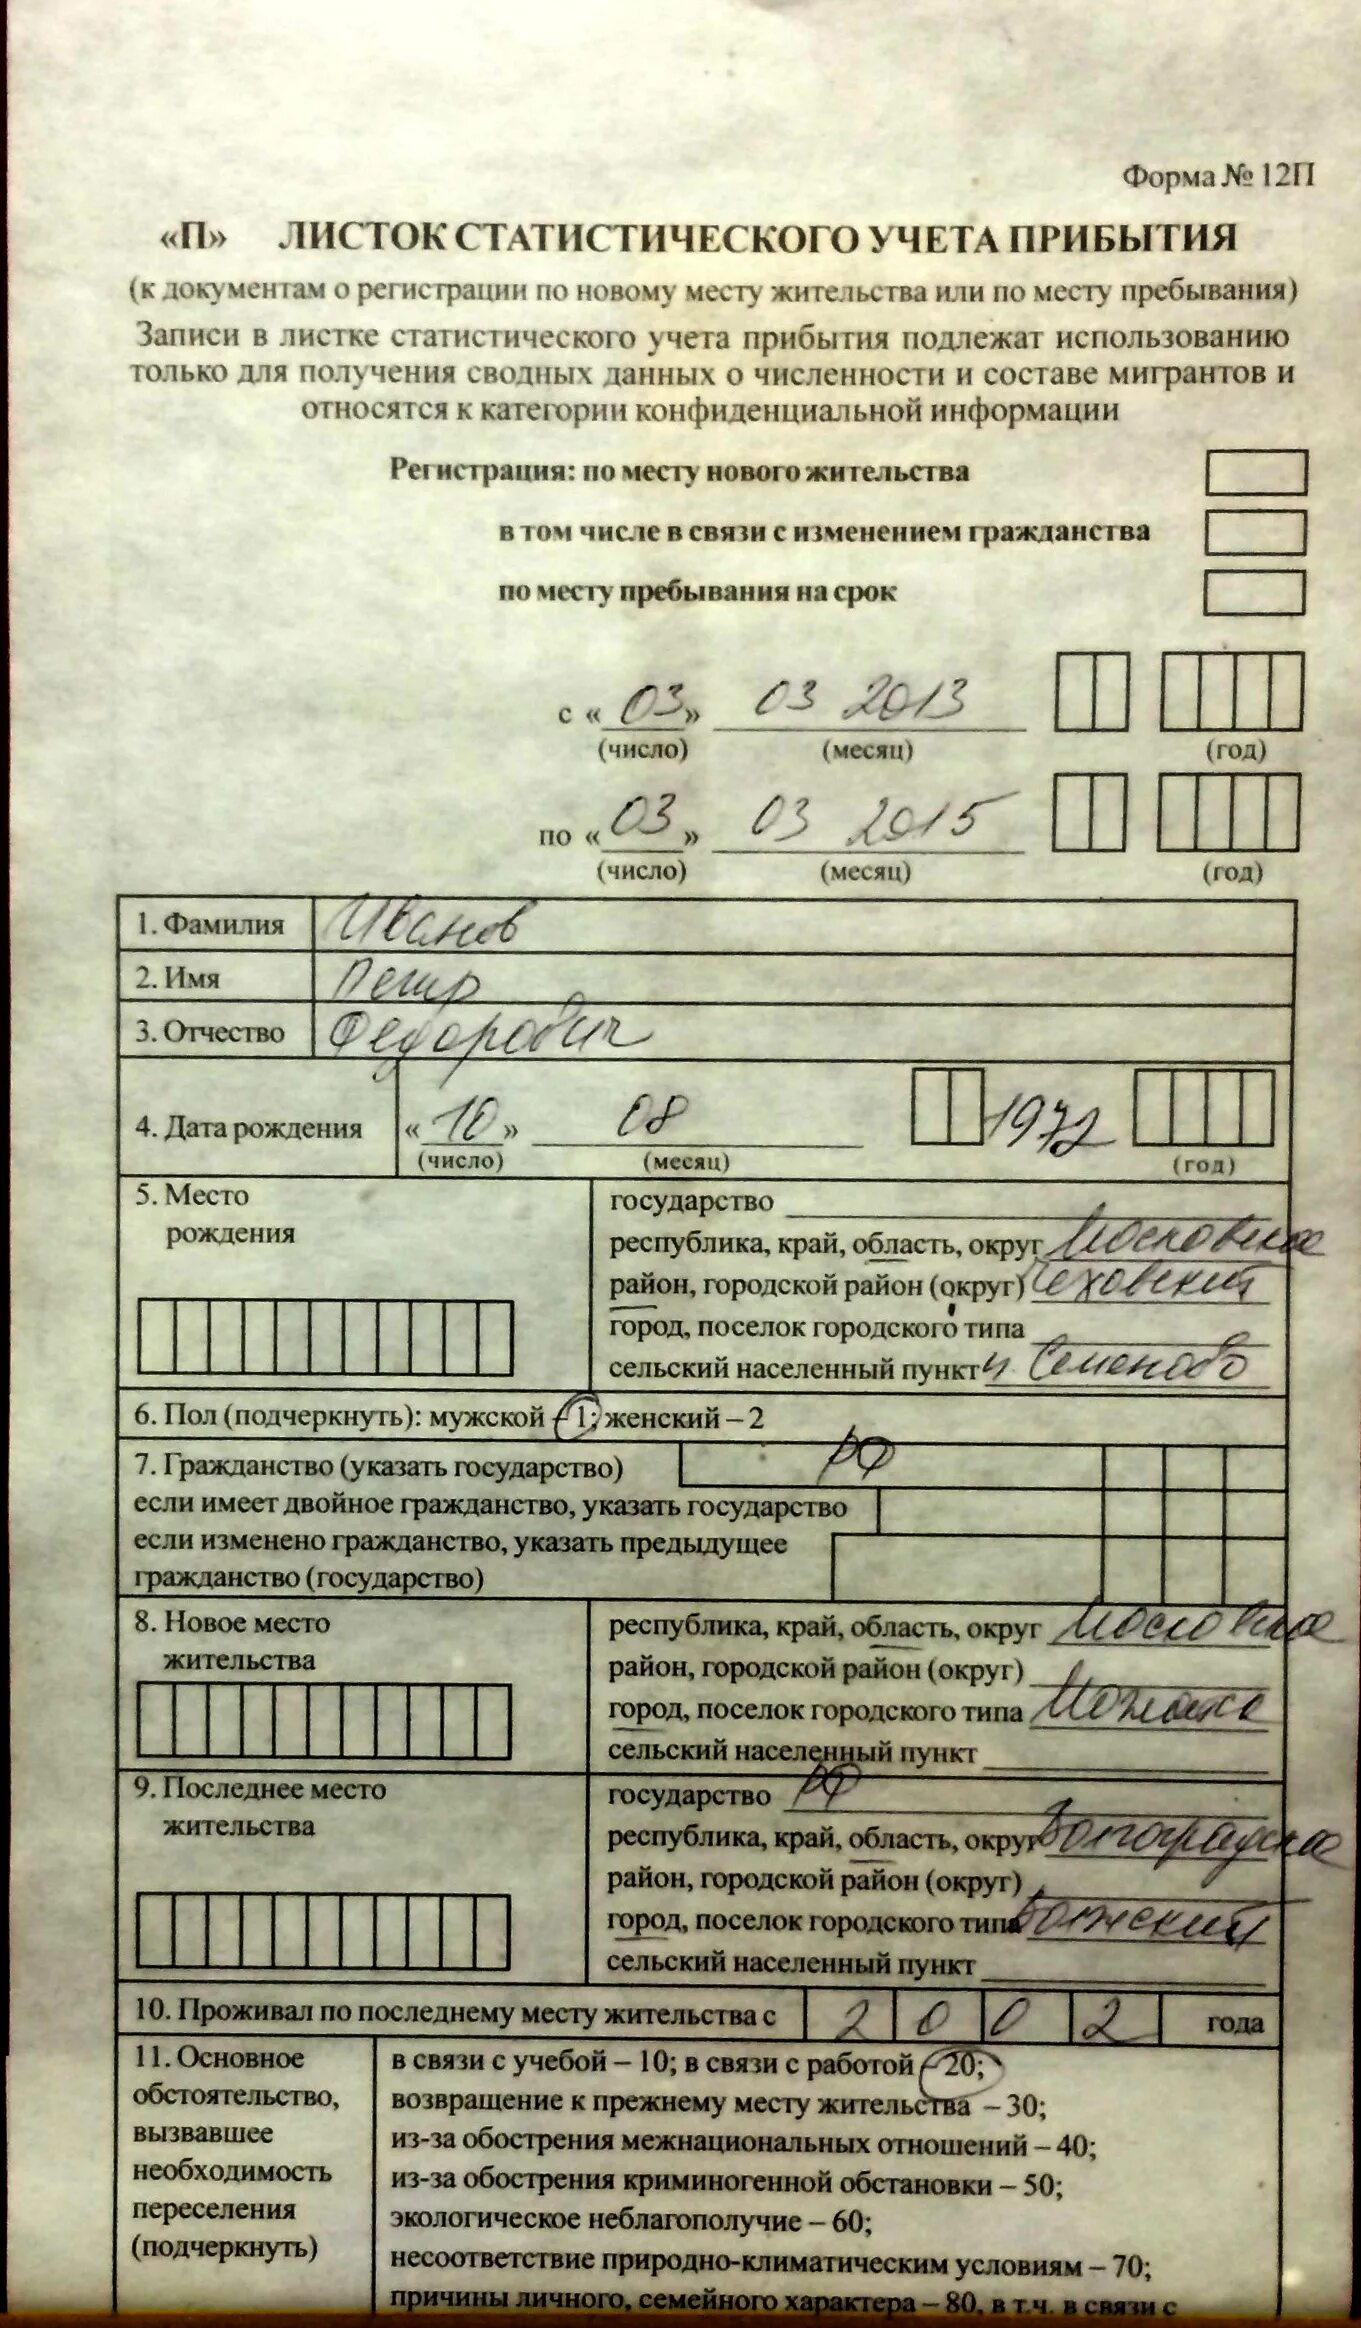 Форма № 12П
«П» ЛИСТОК СТАТИСТИЧЕСКОГО УЧЕТА ПРИБЫТИЯ
(к документам о регистрации по новому месту жительства или по месту пребывания)
Записи в листке статистического учета прибытия подлежат использованию
только для получения сводных данных о численности и составе мигрантов и
относятся к категории конфиденциальной информации
Регистрация: по месту нового жительства
в том числе в связи с изменением гражданства
по месту пребывания на срок
с «03» 03 2013
(число) (месяц) (год)
по «03» 03 2015
(число) (месяц) (год)
1. Фамилия Иванов
2. Имя Петр
3. Отчество Федорович
4. Дата рождения «10» 08 1972
(число) (месяц) (год)
5. Место
рождения
государство
республика, край, область, округ Московская
район, городской район (округ) Чеховский
город, поселок городского типа
сельский населенный пункт Семеново
6. Пол (подчеркнуть): мужской – 1; женский – 2
7. Гражданство (указать государство) РФ
если имеет двойное гражданство, указать государство
если изменено гражданство, указать предыдущее
гражданство (государство)
8. Новое место
жительства
республика, край, область, округ Московская
район, городской район (округ)
город, поселок городского типа
сельский населенный пункт
9. Последнее место
жительства
государство РФ
республика, край, область, округ Волгоградская
район, городской район (округ)
город, поселок городского типа Волжский
сельский населенный пункт
10. Проживал по последнему месту жительства с 2002 года
11. Основное
обстоятельство,
вызвавшее
необходимость
переселения
(подчеркнуть)
в связи с учебой – 10; в связи с работой – 20;
возвращение к прежнему месту жительства – 30;
из-за обострения межнациональных отношений – 40;
из-за обострения криминогенной обстановки – 50;
экологическое неблагополучие – 60;
несоответствие природно-климатическим условиям – 70;
причины личного, семейного характера – 80, в т.ч. в связи с